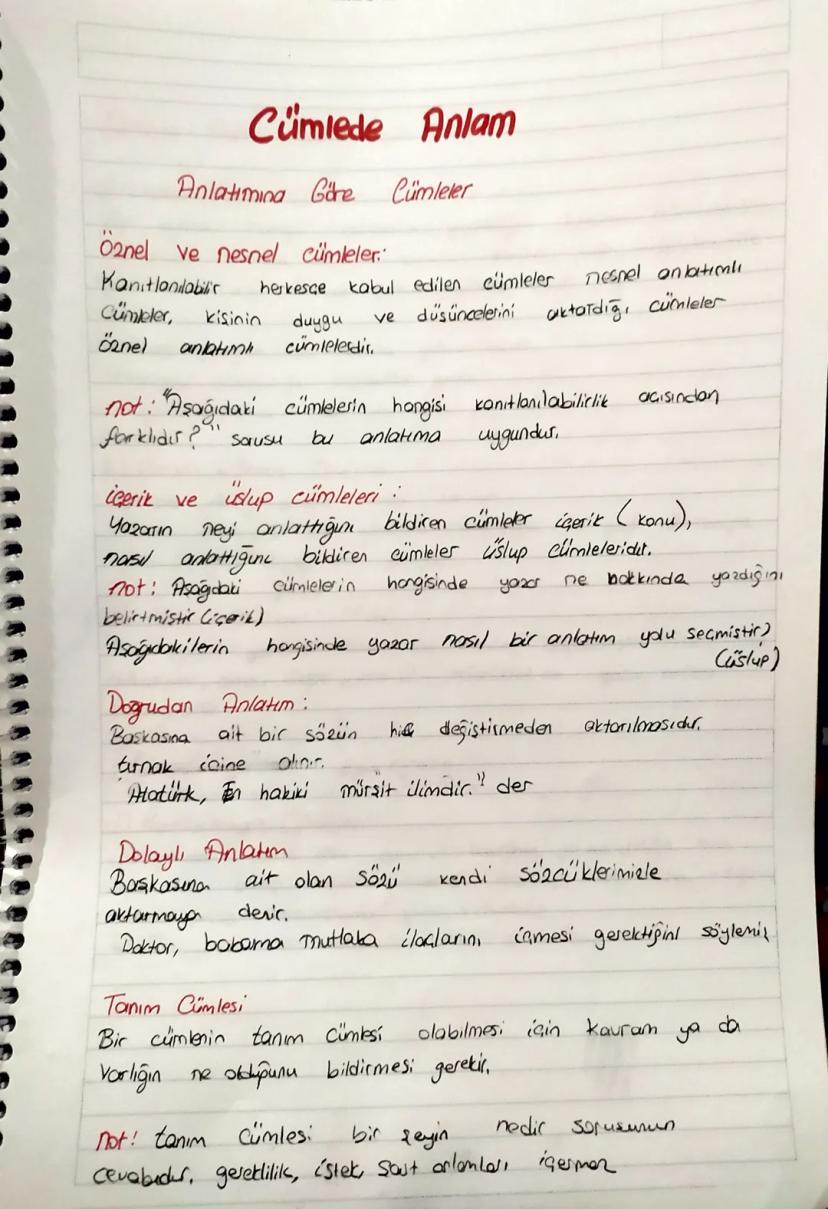 Cümlede Anlam
Anlatımına Göre Cümleler
Öznel ve nesnel cümleler:
Kanıtlanılabilir herkesçe kabul edilen cümleler nesnel anlatımlı
cümleler, kişinin duygu ve düşüncelerini aktardığı cümleler
öznel anlatımlı cümlelerdir.
not: "Aşağıdaki cümlelerin hangisi kanıtlanılabilirlik açısından
farklıdır?" sorusu bu anlatıma uygundur.
içerik ve üslup cümleleri:
Yazarın neyi anlattığını bildiren cümleler içerik (konu),
nasıl anlattığını bildiren cümleler üslup cümleleridir.
not: Aşağıdaki cümlelerin hangisinde yazar ne hakkında yazdığını
belirtmiştir (içerik)
Aşağıdakilerin hangisinde yazar nasıl bir anlatım yolu seçmiştir?
(üslup)
Doğrudan Anlatım:
Başkasına ait bir sözün hiç değiştirmeden aktarılmasıdır.
tırnak içine alınır.
"Atatürk, En hakiki mürşit ilimdir." der
Dolaylı Anlatım
Başkasına ait olan sözü kendi sözcüklerimizle
aktarmaya denir.
Doktor, babama mutlaka ilaçlarını içmesi gerektiğini söylemiş
Tanım Cümlesi
Bir cümlenin tanım cümlesi olabilmesi için kavram ya da
varlığın ne olduğunu bildirmesi gerekir.
not! tanım cümlesi bir şeyin nedir sorusunun
cevabıdır. gereklilik, istek, şart anlamları içermez